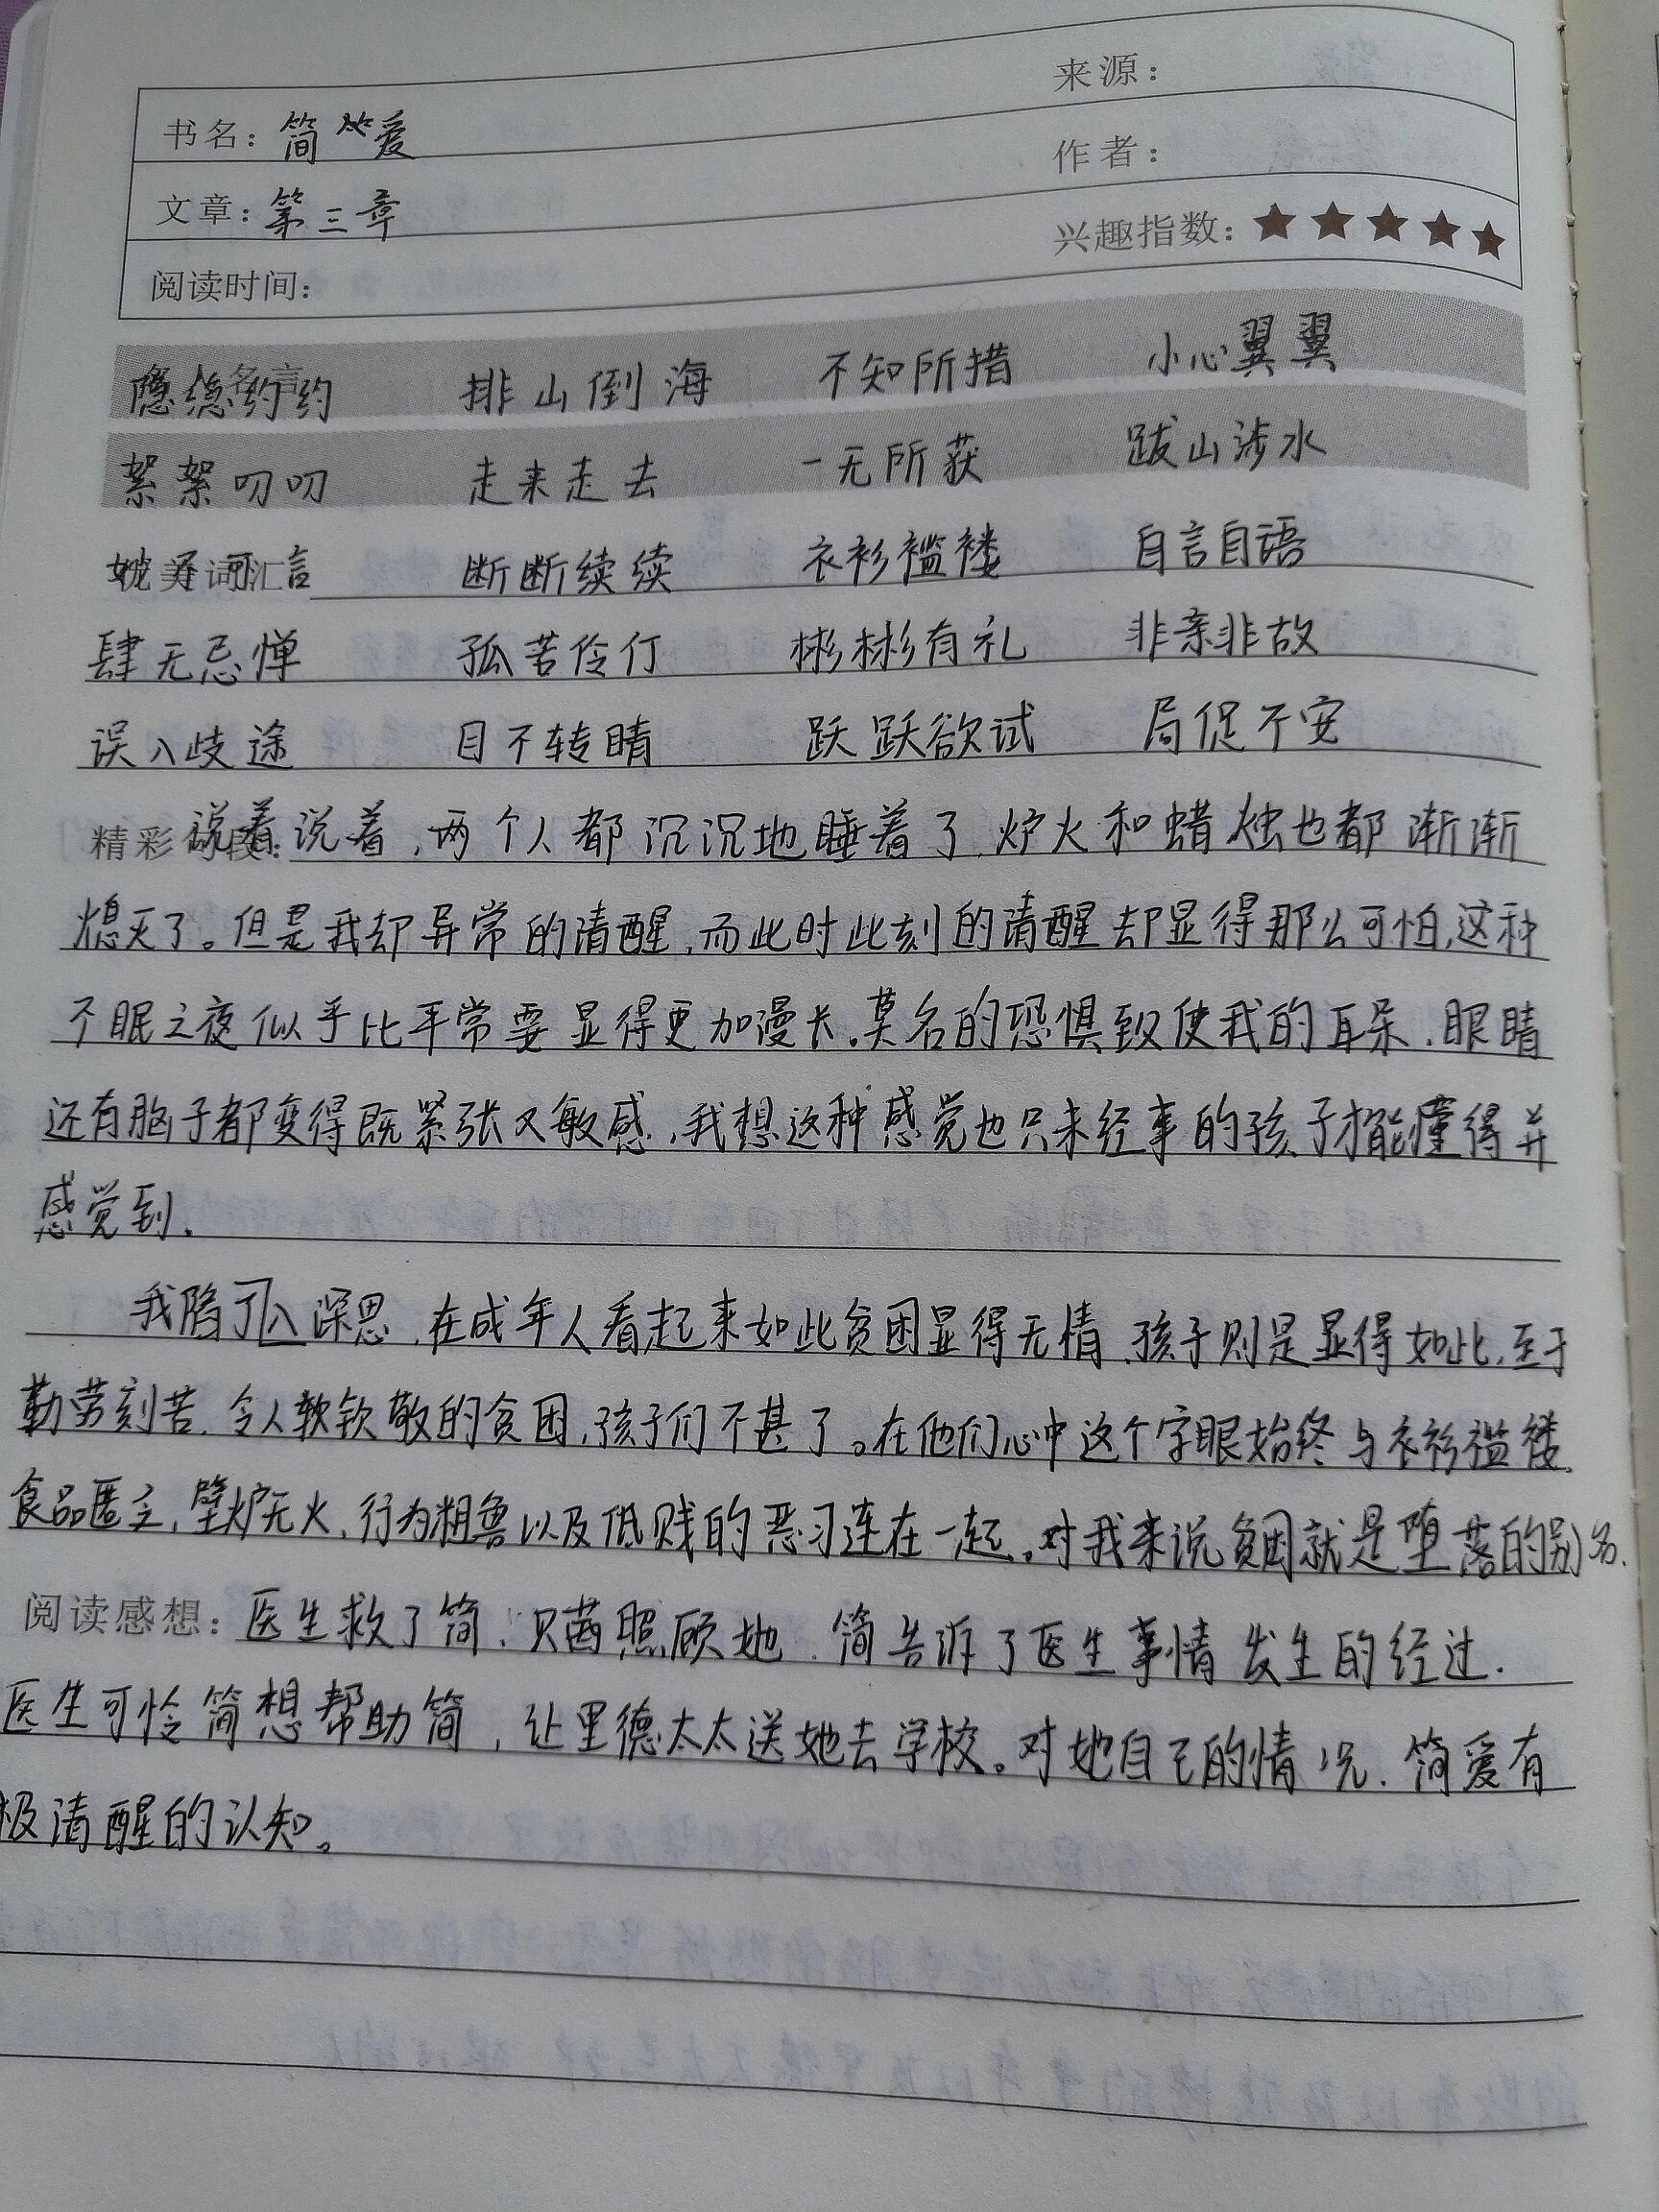 来源：
书名：简 爱
作者：
文章：第三章
兴趣指数：★★★★★
阅读时间：
隐隐约约 排山倒海 不知所措 小心翼翼
絮絮叨叨 走来走去 一无所获 跋山涉水
断断续续 衣衫褴褛 自言自语
肆无忌惮 孤苦伶仃 彬彬有礼 非亲非故
误入歧途 目不转睛 跃跃欲试 局促不安
精彩 说着说着，两个人都沉沉地睡着了，炉火和蜡烛也都渐渐
熄灭了。但是我却异常的清醒，而此时此刻的清醒却显得那么可怕，这种
不眠之夜似乎比平常要显得更加漫长。莫名的恐惧致使我的耳朵、眼睛
还有脑子都变得既紧张又敏感，我想这种感觉也只未经事的孩子才能懂得并
感觉到。
我陷了入深思，在成年人看起来如此贫困显得无情，孩子则是显得如此，至于
勤劳刻苦、令人软钦敬的贫困，孩子们不甚了。在他们心中这个字眼始终与衣衫褴褛、
食品匮乏，壁炉无火、行为粗鲁以及低贱的恶习连在一起。对我来说贫困就是堕落的别名。
阅读感想：医生救了简，贝茜照顾她，简告诉了医生事情发生的经过.
医生可怜简想帮助简，让里德太太送她去学校。对她自己的情况，简爱有
极清醒的认知。